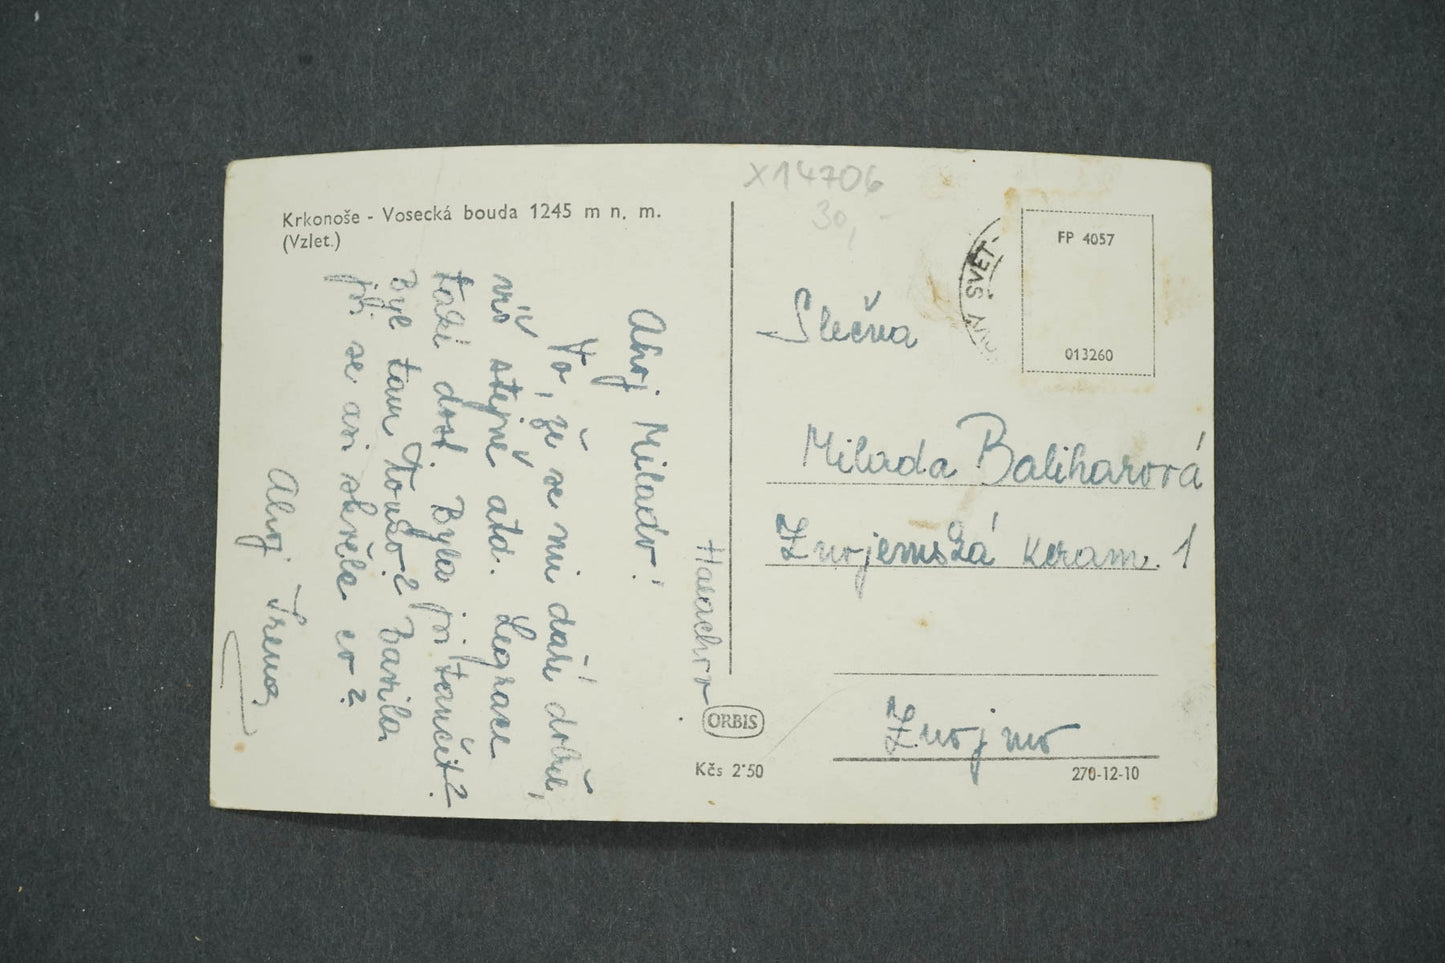 Krkonoše - Vosecká bouda 1245 m n. m.
(Vzlet.)
Ahoj Milado!
To, že se mi daří dobře,
víš stejně atd. Legrace
taky dost. Byla jsi tančit?
Byl tam Jouso? Bavila
jsi se ani skvěle co?
Ahoj Irena
Harachov
X14706
30,-
SVĚT
FP 4057
013260
Slečna
Milada Baliharová
Znojemská keram. 1
Znojmo
ORBIS
Kčs 2·50
270-12-10